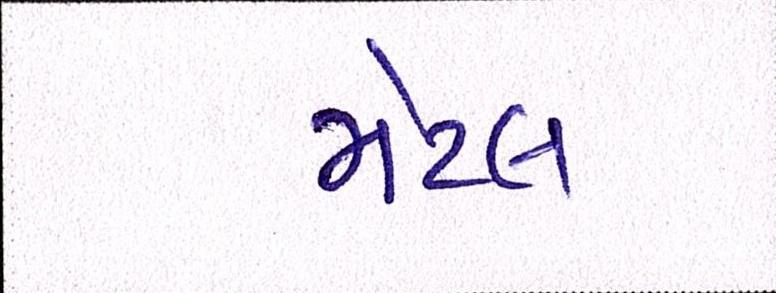 મેટલ